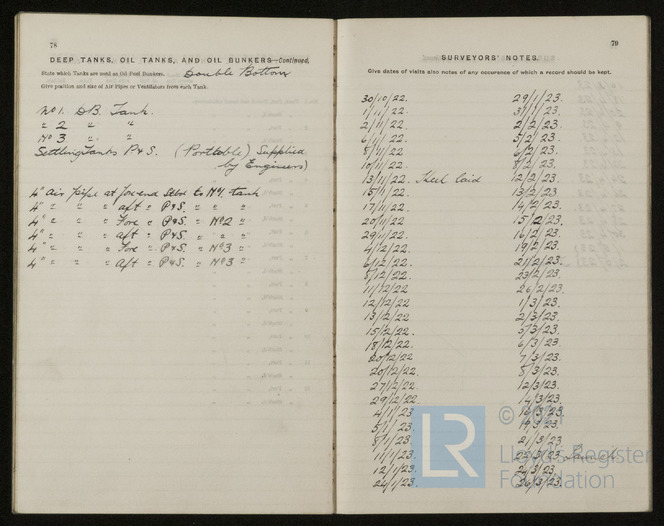 78
DEEP TANKS, OIL TANKS, AND OIL BUNKERS—Continued.
State which Tanks are used as Oil Fuel Bunkers. Double Bottom
Give position and size of Air Pipes or Ventilators from each Tank.
No 1. D.B. Tank.
" 2 " "
No 3 " "
Settling Tanks P&S. (Portable) Supplied
by Engineers)
4" Air Pipe at fore end Stbd to No 1, tank
4" " " " aft " P&S. " " "
4" " " " Fore " P&S. " No 2 "
4" " " " Aft " P&S " " "
4" " " " Fore " P&S. " No 3 "
4" " " " Aft " P&S. " No 3 "
79
SURVEYORS' NOTES.
Give dates of visits also notes of any occurance of which a record should be kept.
30/10/22. 29/1/23.
1/11/22. 31/1/23.
2/11/22. 2/2/23.
6/11/22. 5/2/23.
8/11/22. 6/2/23.
10/11/22. 8/2/23.
13/11/22. Keel laid 12/2/23.
15/11/22. 13/2/23.
17/11/22. 14/2/23.
20/11/22 15/2/23.
29/11/22. 16/2/23.
4/12/22. 19/2/23.
6/12/22. 21/2/23.
8/12/22. 23/2/23
11/12/22 26/2/23.
12/12/22 1/3/23.
13/12/22 2/3/23.
15/12/22. 5/3/23.
18/12/22. 6/3/23.
20/12/22 7/3/23.
20/12/22. 8/3/23.
27/12/22 12/3/23.
29/12/22 14/3/23.
4/1/23 16/3/23.
5/1/23. 19/3/23.
8/1/23. 21/3/23.
11/1/23. 22/3/23 Launch
12/1/23. 24/3/23.
24/1/23. 26/3/23.
LR
Lloyd's Register
Foundation